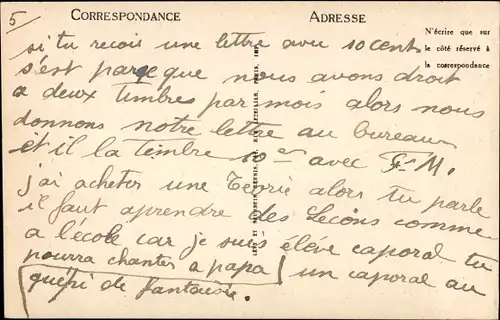 5
CORRESPONDANCE
ADRESSE
N'écrire que sur
le côté réservé à
la correspondance
si tu recois une lettre avec 10 cent
s'est parce que nous avons droit
a deux timbres par mois alors nous
donnons notre lettre au bureau
et il la timbre 10 avec F.M.
j'ai acheter une Téorie alors tu parle
il faut aprendre des Lecons comme
a l'école car je suis élève caporal tu
pourra chanter a papa un caporal au
quépi de fantaisie.